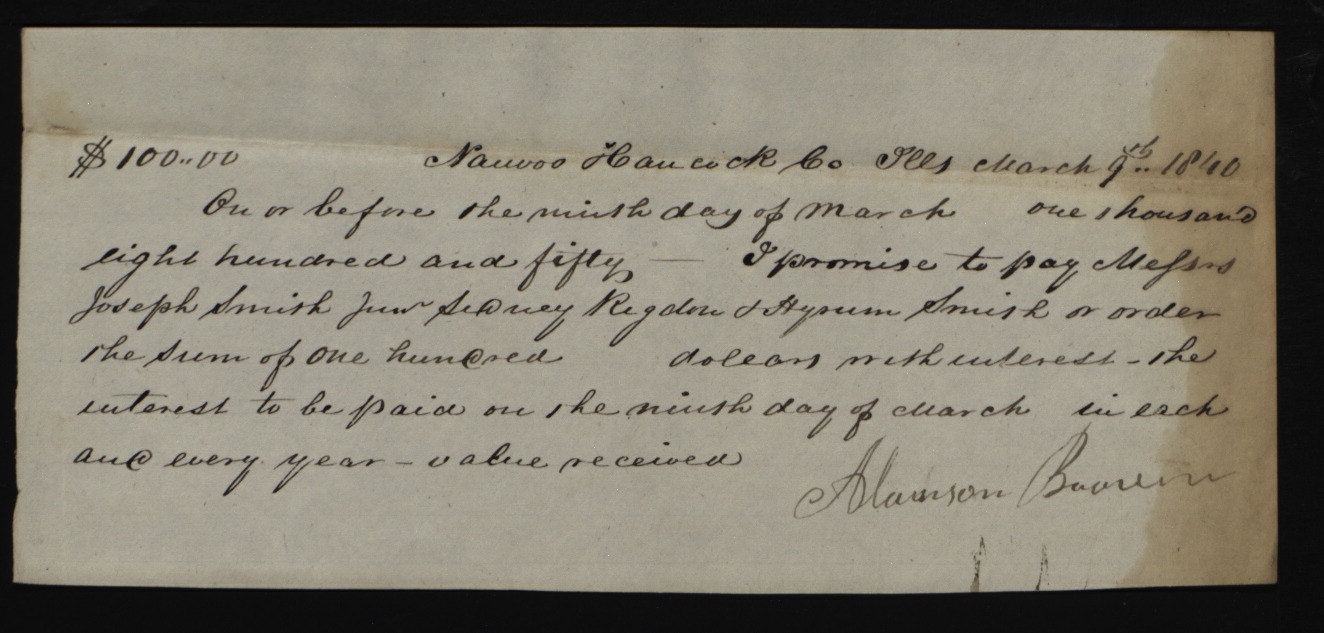 $100..00 Nauvoo Hancock Co Ills March 9th.. 1840
On or before the ninth day of March one thousand
eight hundred and fifty — I promise to pay Messrs
Joseph Smith Junr Sidney Rigdon & Hyrum Smith or order
the sum of One hundred dolears with interest - the
interest to be paid on the ninth day of March in each
and every year - value received
Alanson Brown